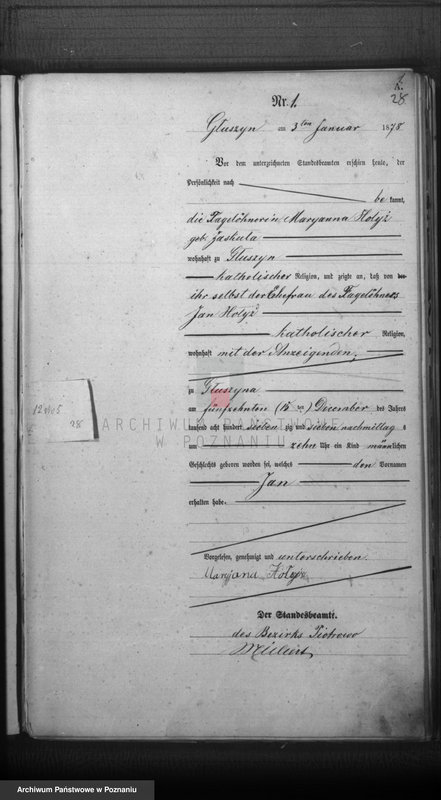 1.
28
Nr. 1.
Głuszyn am 3ten Januar 1878
Vor dem unterzeichneten Standesbeamten erschien heute, der
Persönlichkeit nach
be kannt,
die Tagelöhnerin Maryanna Hołyź
geb. Jaskula
wohnhaft zu Głuszyn
katholischer Religion, und zeigte an, daß von der
ihr selbst der Ehefrau des Tagelöhners
Jan Hołyź
katholischer Religion,
wohnhaft mit der Anzeigenden,
zu Głuszyna
am fünfzehnten (15 ten) December des Jahres
tausend acht hundert sieben zig und sieben nachmittag s
um zehn Uhr ein Kind männlichen
Geschlechts geboren worden sei, welches den Vornamen
Jan
erhalten habe.
Vorgelesen, genehmigt und unterschrieben.
Maryjana Hołyź
Der Standesbeamte.
des Bezirks Piotrowo
28
ARCHIWUM PAŃSTWOWE
W POZNANIU
Archiwum Państwowe w Poznaniu